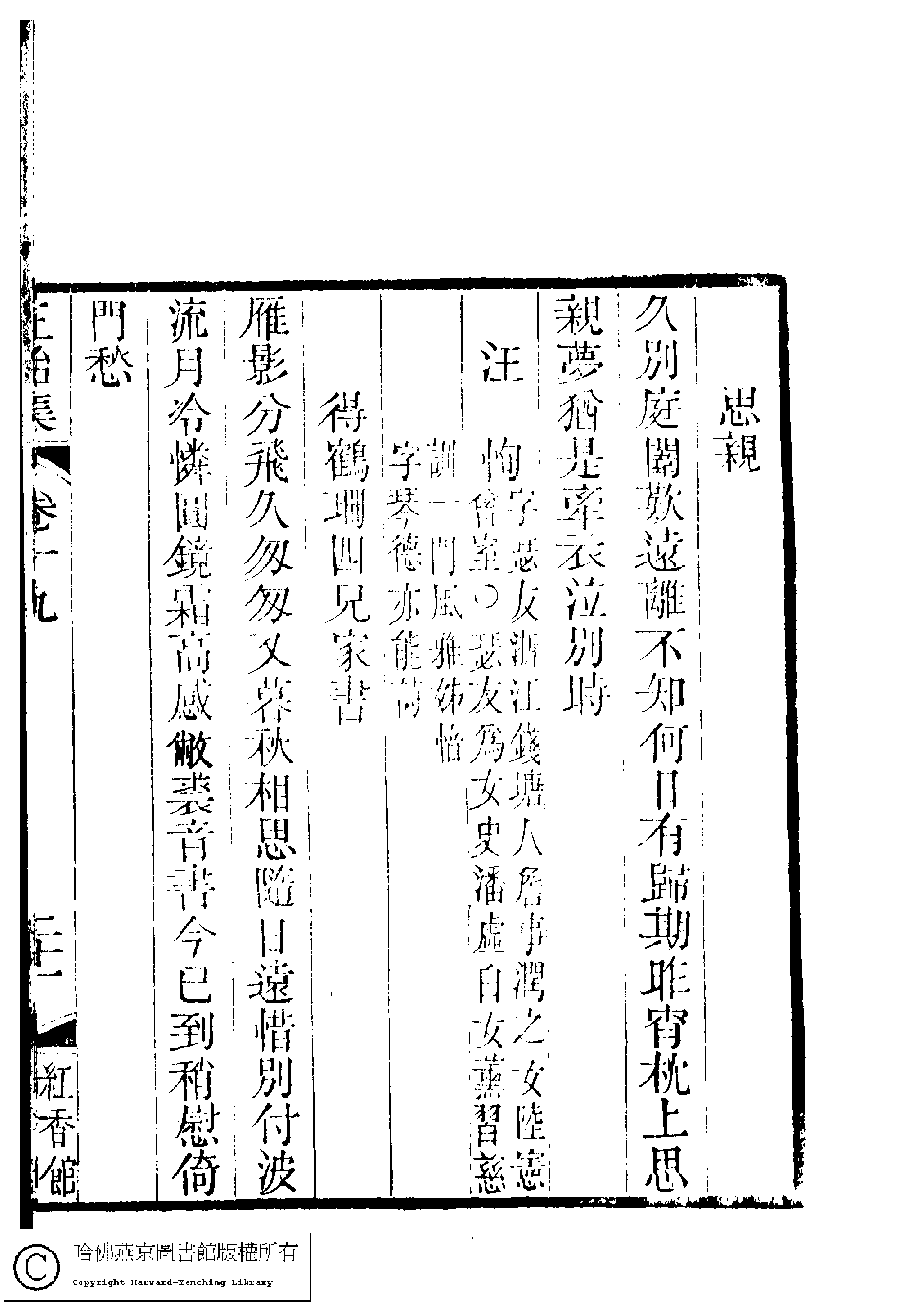 思親
久別庭闈歎遠離不知何日有歸期昨宵枕上思
親夢猶是牽衣泣別時
汪恂
字瑟友浙江錢塘人詹事潤之女陸憲
曾室○瑟友爲女史潘虛白女蕉習慈
訓一門風雅姊怡
字琴德亦能詩
得鶴珊四兄家書
雁影分飛久匆匆又暮秋相思隨日遠惜別付波
流月冷憐圓鏡霜高感敝裘音書今已到稍慰倚
門愁
正始集
卷十九
二十一
紅香館
哈佛燕京圖書館版權所有
Copyright Harvard-Yenching Library